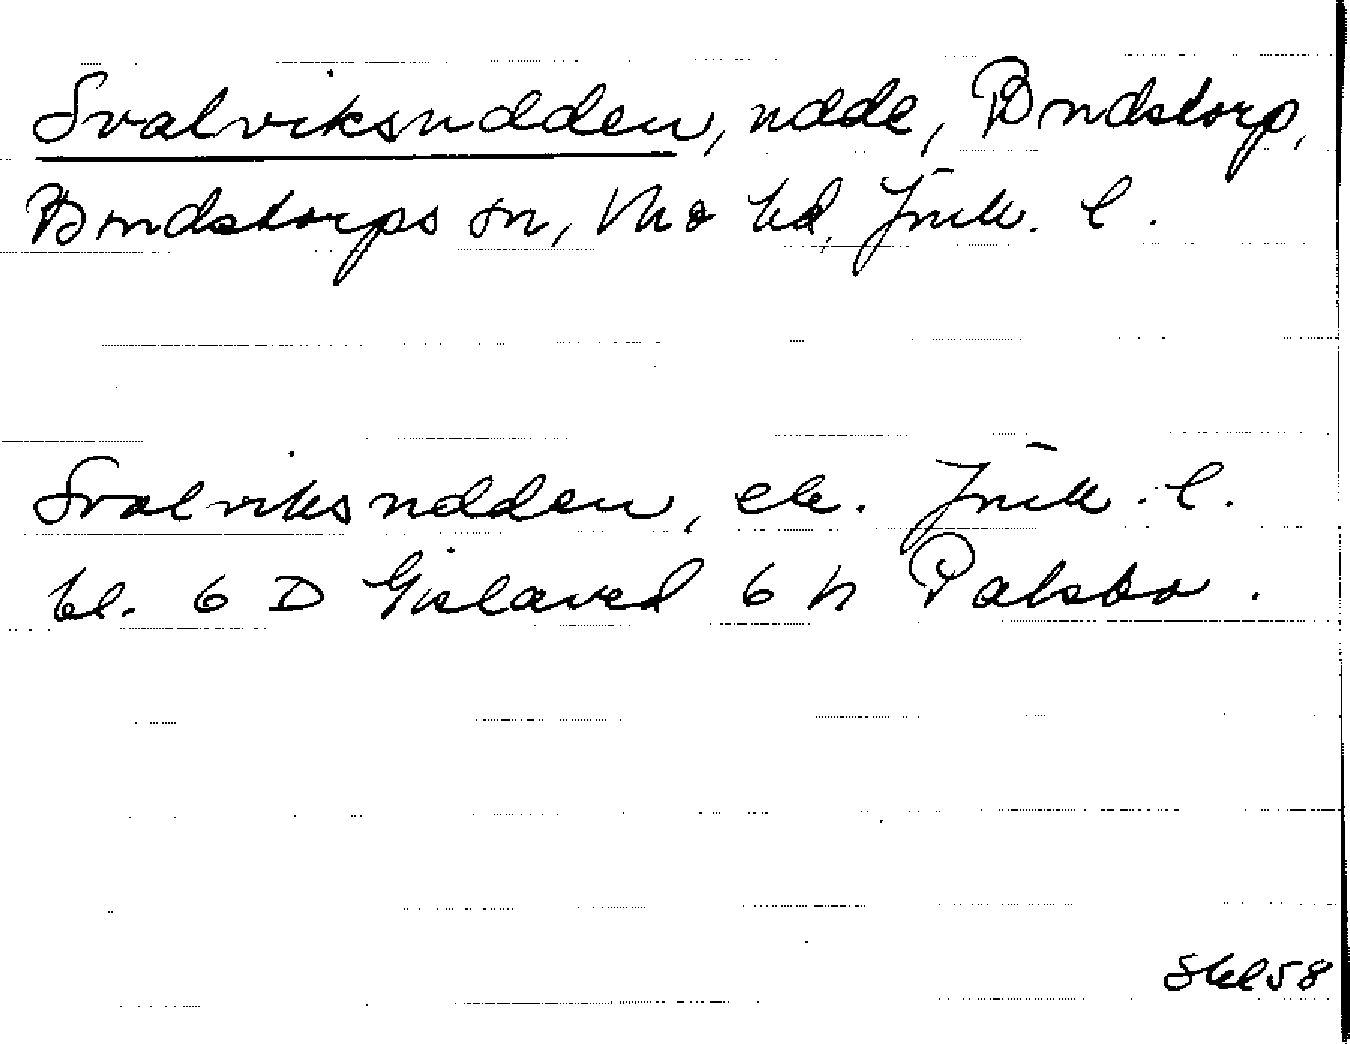 Svalviksudden, udde, Bondstorp,
Bondstorps sn, Mo hd, Jönk. l.
Svalviksudden, ek. Jönk. l.
bl. 6 D Gislaved 6 h Palsbo.